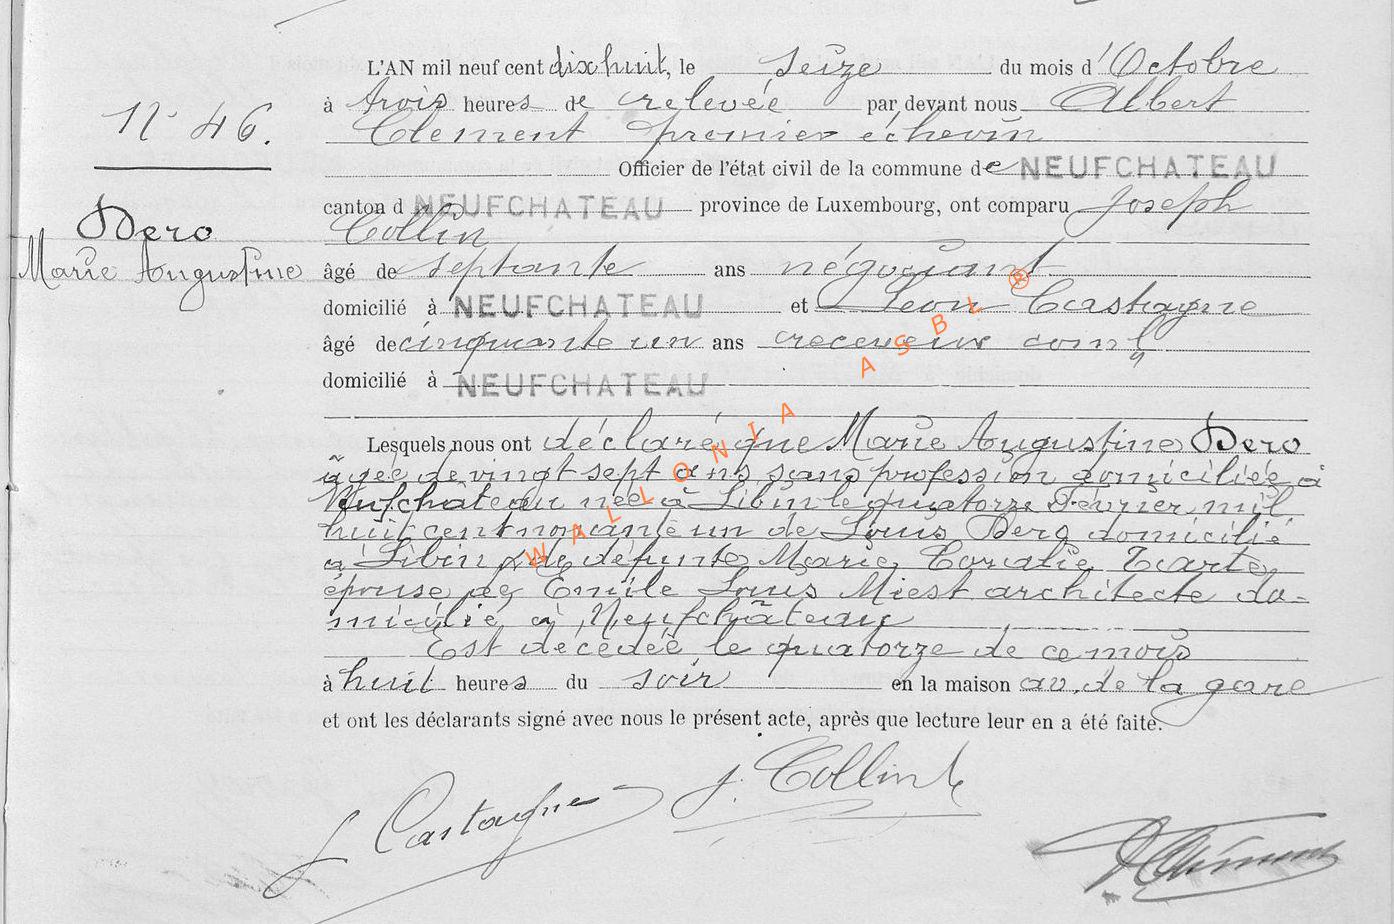 L'AN mil neuf cent dix huit, le seize du mois d'Octobre
à trois heures de relevée par devant nous Albert
Clement premier échevin
Officier de l'état civil de la commune de NEUFCHATEAU
canton d NEUFCHATEAU province de Luxembourg, ont comparu Joseph
Collin
âgé de septante ans négociant
domicilié à NEUFCHATEAU et Leon Castagne
âgé de cinquante un ans receveur coml
domicilié à NEUFCHATEAU
Lesquels nous ont déclaré que Marie Augustine Dero
âgée de vingt sept ans sans profession domiciliée à
Neufchateau née à Libin le quatorze Février mil
huit cent nonante un de Louis Dero domicilié
à Libin & de défunte Marie Coralie Tarte
épouse de Emile Louis Miest architecte do-
micilié à Neufchâteau
Est décédée le quatorze de ce mois
à huit heures du soir en la maison av. de la gare
et ont les déclarants signé avec nous le présent acte, après que lecture leur en a été faite.
N° 46.
Dero
Marie Augustine
L Castagne
J. Collin
WALLONIA ASBL ®